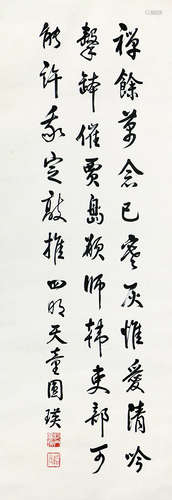 禅餘萬念已寒灰惟愛清吟
擊鉢催賈島願師韩吏部可
能許我定敲推 四明天童圓瑛